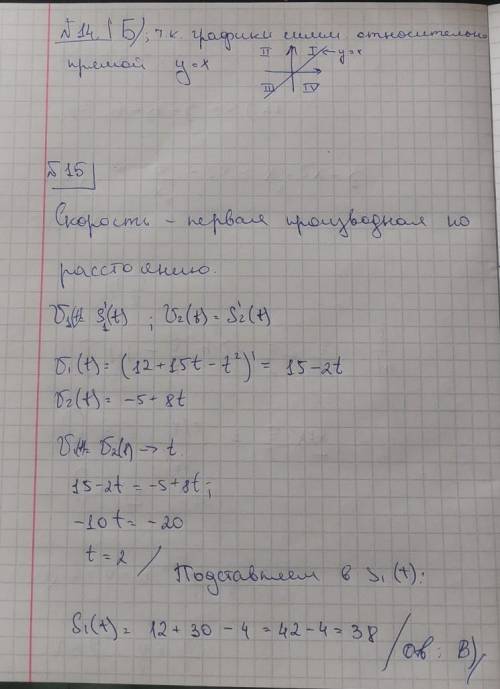 № 14. Б); т.к. графики симм. относительно
прямой y=x
II I ← y=x
III IV
№ 15
Скорость - первая производная по
расстоянию.
V₁(t)= S₁'(t) ; V₂(t) = S₂'(t)
V₁(t) = (12 + 15t - t²)' = 15-2t
V₂(t) = -5 + 8t
V₁(t)= V₂(t) → t
15-2t = -5+8t;
-10t = -20
t = 2 / Подставляем в S₁(t):
S₁(t) = 12 + 30 - 4 = 42-4 = 38 / Отв: В)